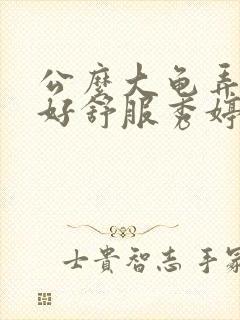 公麼大龟弄
好舒服秀婷
士貴智志手冢